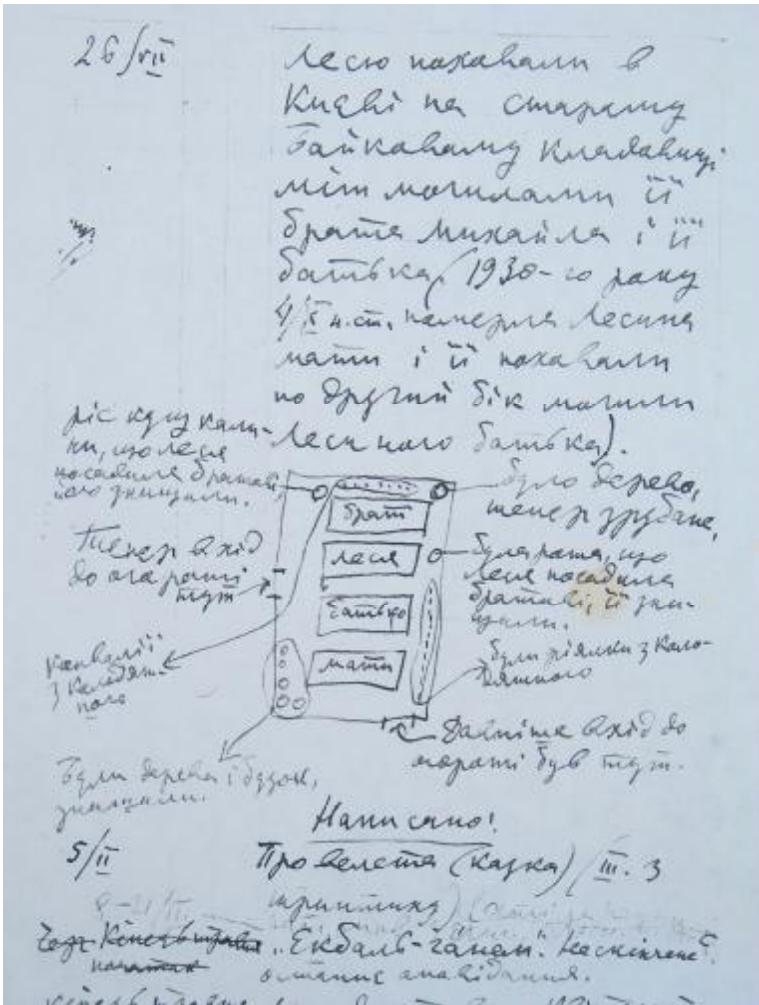 26/VII
Лесю поховали в
Києві на старому
Байковому кладовищі
між могилами її
брата Михайла і її
батька (1930-го року
4/X н.ст. померла Лесина
мати і її поховали
по другий бік могили
Лесиного батька).
ріс кущ кали-
ни, що Леся
посадила братові,
його знищили.
було дерево,
тепер зрубане,
брат
Леся
батько
мати
Тепер вхід
до огорожі
тут
була рожа, що
Леся посадила
братові, її зни-
щили.
Конвалії
з Колодяж-
ного
були фіялки з Коло-
дяжного
Давніше вхід до
огорожі був тут.
Були дерева і бузок,
знищили.
Написано!
5/II
Про велета (казка) /III. З
"Екбаль-ганем". Нескінчене
останнє оповідання.
початок